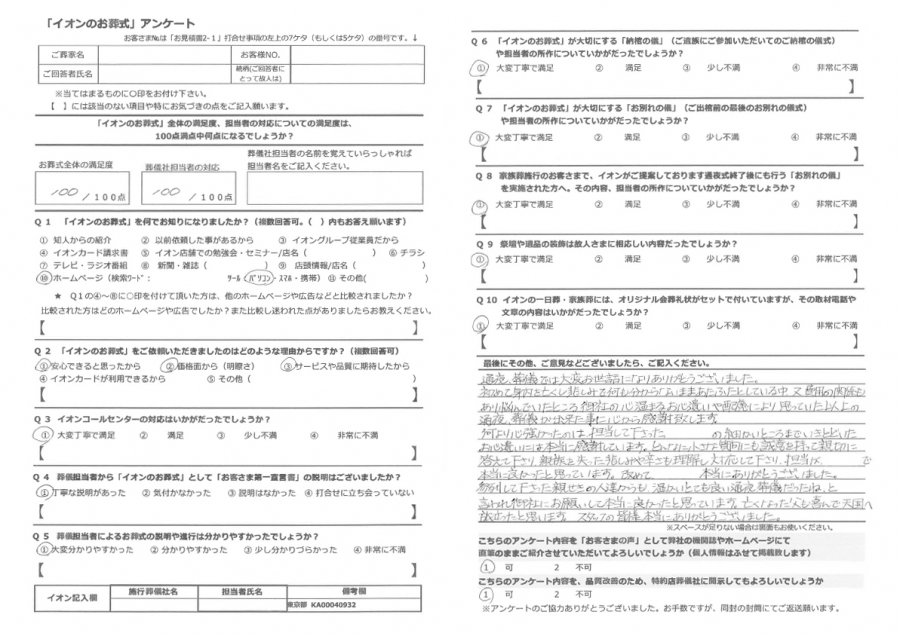 「イオンのお葬式」アンケート
お客さま№は「お見積書2-1」打合せ事項の左上の7ケタ（もしくは5ケタ）の番号です。↓
ご葬家名 お客様NO.
ご回答者氏名 続柄(ご回答者にとって故人は)
※当てはまるものに〇印をお付け下さい。
【 】には該当のない項目や特にお気づきの点をご記入願います。
「イオンのお葬式」全体の満足度、担当者の対応についての満足度は、
100点満点中何点になるでしょうか？
お葬式全体の満足度 葬儀社担当者の対応 葬儀社担当者の名前を覚えていらっしゃれば
担当者名をご記入ください。
100 /100点 100 /100点
Q 1 「イオンのお葬式」を何でお知りになりましたか？（複数回答可。( ）内もお答え願います）
① 知人からの紹介 ② 以前依頼した事があるから ③ イオングループ従業員だから
④ イオンカード請求書 ⑤ イオン店舗での勉強会・セミナー/店名 ( ) ⑥ チラシ
⑦ テレビ・ラジオ番組 ⑧ 新聞・雑誌 ( ) ⑨ 店頭情報/店名 ( )
⑩ ホームページ（検索ﾜｰﾄﾞ： ﾂｰﾙ（パソコン・ｽﾏﾎ・携帯） ⑪ その他( )
★ Q1の④～⑧に〇印を付けて頂いた方は、他のホームページや広告などと比較されましたか？
比較された方はどのホームページや広告でしたか？また比較し迷われた点がありましたらお教えください。
【 】
Q 2 「イオンのお葬式」をご依頼いただきましたのはどのような理由からですか？（複数回答可）
①安心できると思ったから ②価格面から（明瞭さ） ③サービスや品質に期待したから
④イオンカードが利用できるから ⑤ その他 ( )
【 】
Q 3 イオンコールセンターの対応はいかがだったでしょうか？
① 大変丁寧で満足 ② 満足 ③ 少し不満 ④ 非常に不満
【 】
Q 4 葬儀担当者から「イオンのお葬式」として「お客さま第一宣言書」の説明はございましたか？
①丁寧な説明があった ② 気付かなかった ③ 説明はなかった ④ 打合せに立ち会っていない
【 】
Q 5 葬儀担当者によるお葬式の説明や進行は分かりやすかったでしょうか？
①大変分かりやすかった ② 分かりやすかった ③ 少し分かりづらかった ④ 非常に不満
【 】
イオン記入欄 施行葬儀社名 担当者氏名 備考欄
東京都 KA00040932
Q 6 「イオンのお葬式」が大切にする「納棺の儀」（ご遺族にご参加いただいてのご納棺の儀式）
や担当者の所作についていかがだったでしょうか？
① 大変丁寧で満足 ② 満足 ③ 少し不満 ④ 非常に不満
【 】
Q 7 「イオンのお葬式」が大切にする「お別れの儀」（ご出棺前の最後のお別れの儀式）
や担当者の所作についていかがだったでしょうか？
① 大変丁寧で満足 ② 満足 ③ 少し不満 ④ 非常に不満
【 】
Q 8 家族葬施行のお客さまで、イオンがご提案しております通夜式終了後にも行う「お別れの儀」
を実施された方へ。その内容、担当者の所作についていかがだったでしょうか？
① 大変丁寧で満足 ② 満足 ③ 少し不満 ④ 非常に不満
【 】
Q 9 祭壇や遺品の装飾は故人さまに相応しい内容だったでしょうか？
① 大変丁寧で満足 ② 満足 ③ 少し不満 ④ 非常に不満
【 】
Q 10 イオンの一日葬・家族葬には、オリジナル会葬礼状がセットで付いていますが、その取材電話や
文章の内容はいかがだったでしょうか？
① 大変丁寧で満足 ② 満足 ③ 少し不満 ④ 非常に不満
【 】
最後にその他、ご意見などございましたら、ご記入ください。
通夜、葬儀では大変お世話になりありがとうございました。
あり悩んでいたところ御社の心温まるお心遣いや
通夜、葬儀が出来た事に心から感謝致します。
何より心強かったのは、担当して下さった の細かいところまでいきとどいた
お心遣いには本当に感謝しています。
答えて下さり、親族を失った悲しみや辛さも理解し対応して下さり、担当が で
本当に良かったと思っています。改めて 本当にありがとうございました。
参列して下さった親せきの人達からも、温かいとても良い通夜、葬儀だったね、と
言われ御社にお願いして本当に良かったと思っています。亡くなった父も喜んで天国へ
旅立ったと思います。スタッフの皆様本当にありがとうございました。
※スペースが足りない場合は裏面もお使いください。
こちらのアンケート内容を「お客さまの声」として弊社の機関誌やホームページにて
直筆のままご紹介させていただいてよろしいでしょうか（個人情報はふせて掲載致します）
1 可 2 不可
こちらのアンケート内容を、品質改善のため、特約店葬儀社に開示してもよろしいでしょうか
1 可 2 不可
※アンケートのご協力ありがとうございました。お手数ですが、同封の封筒にてご返送願います。